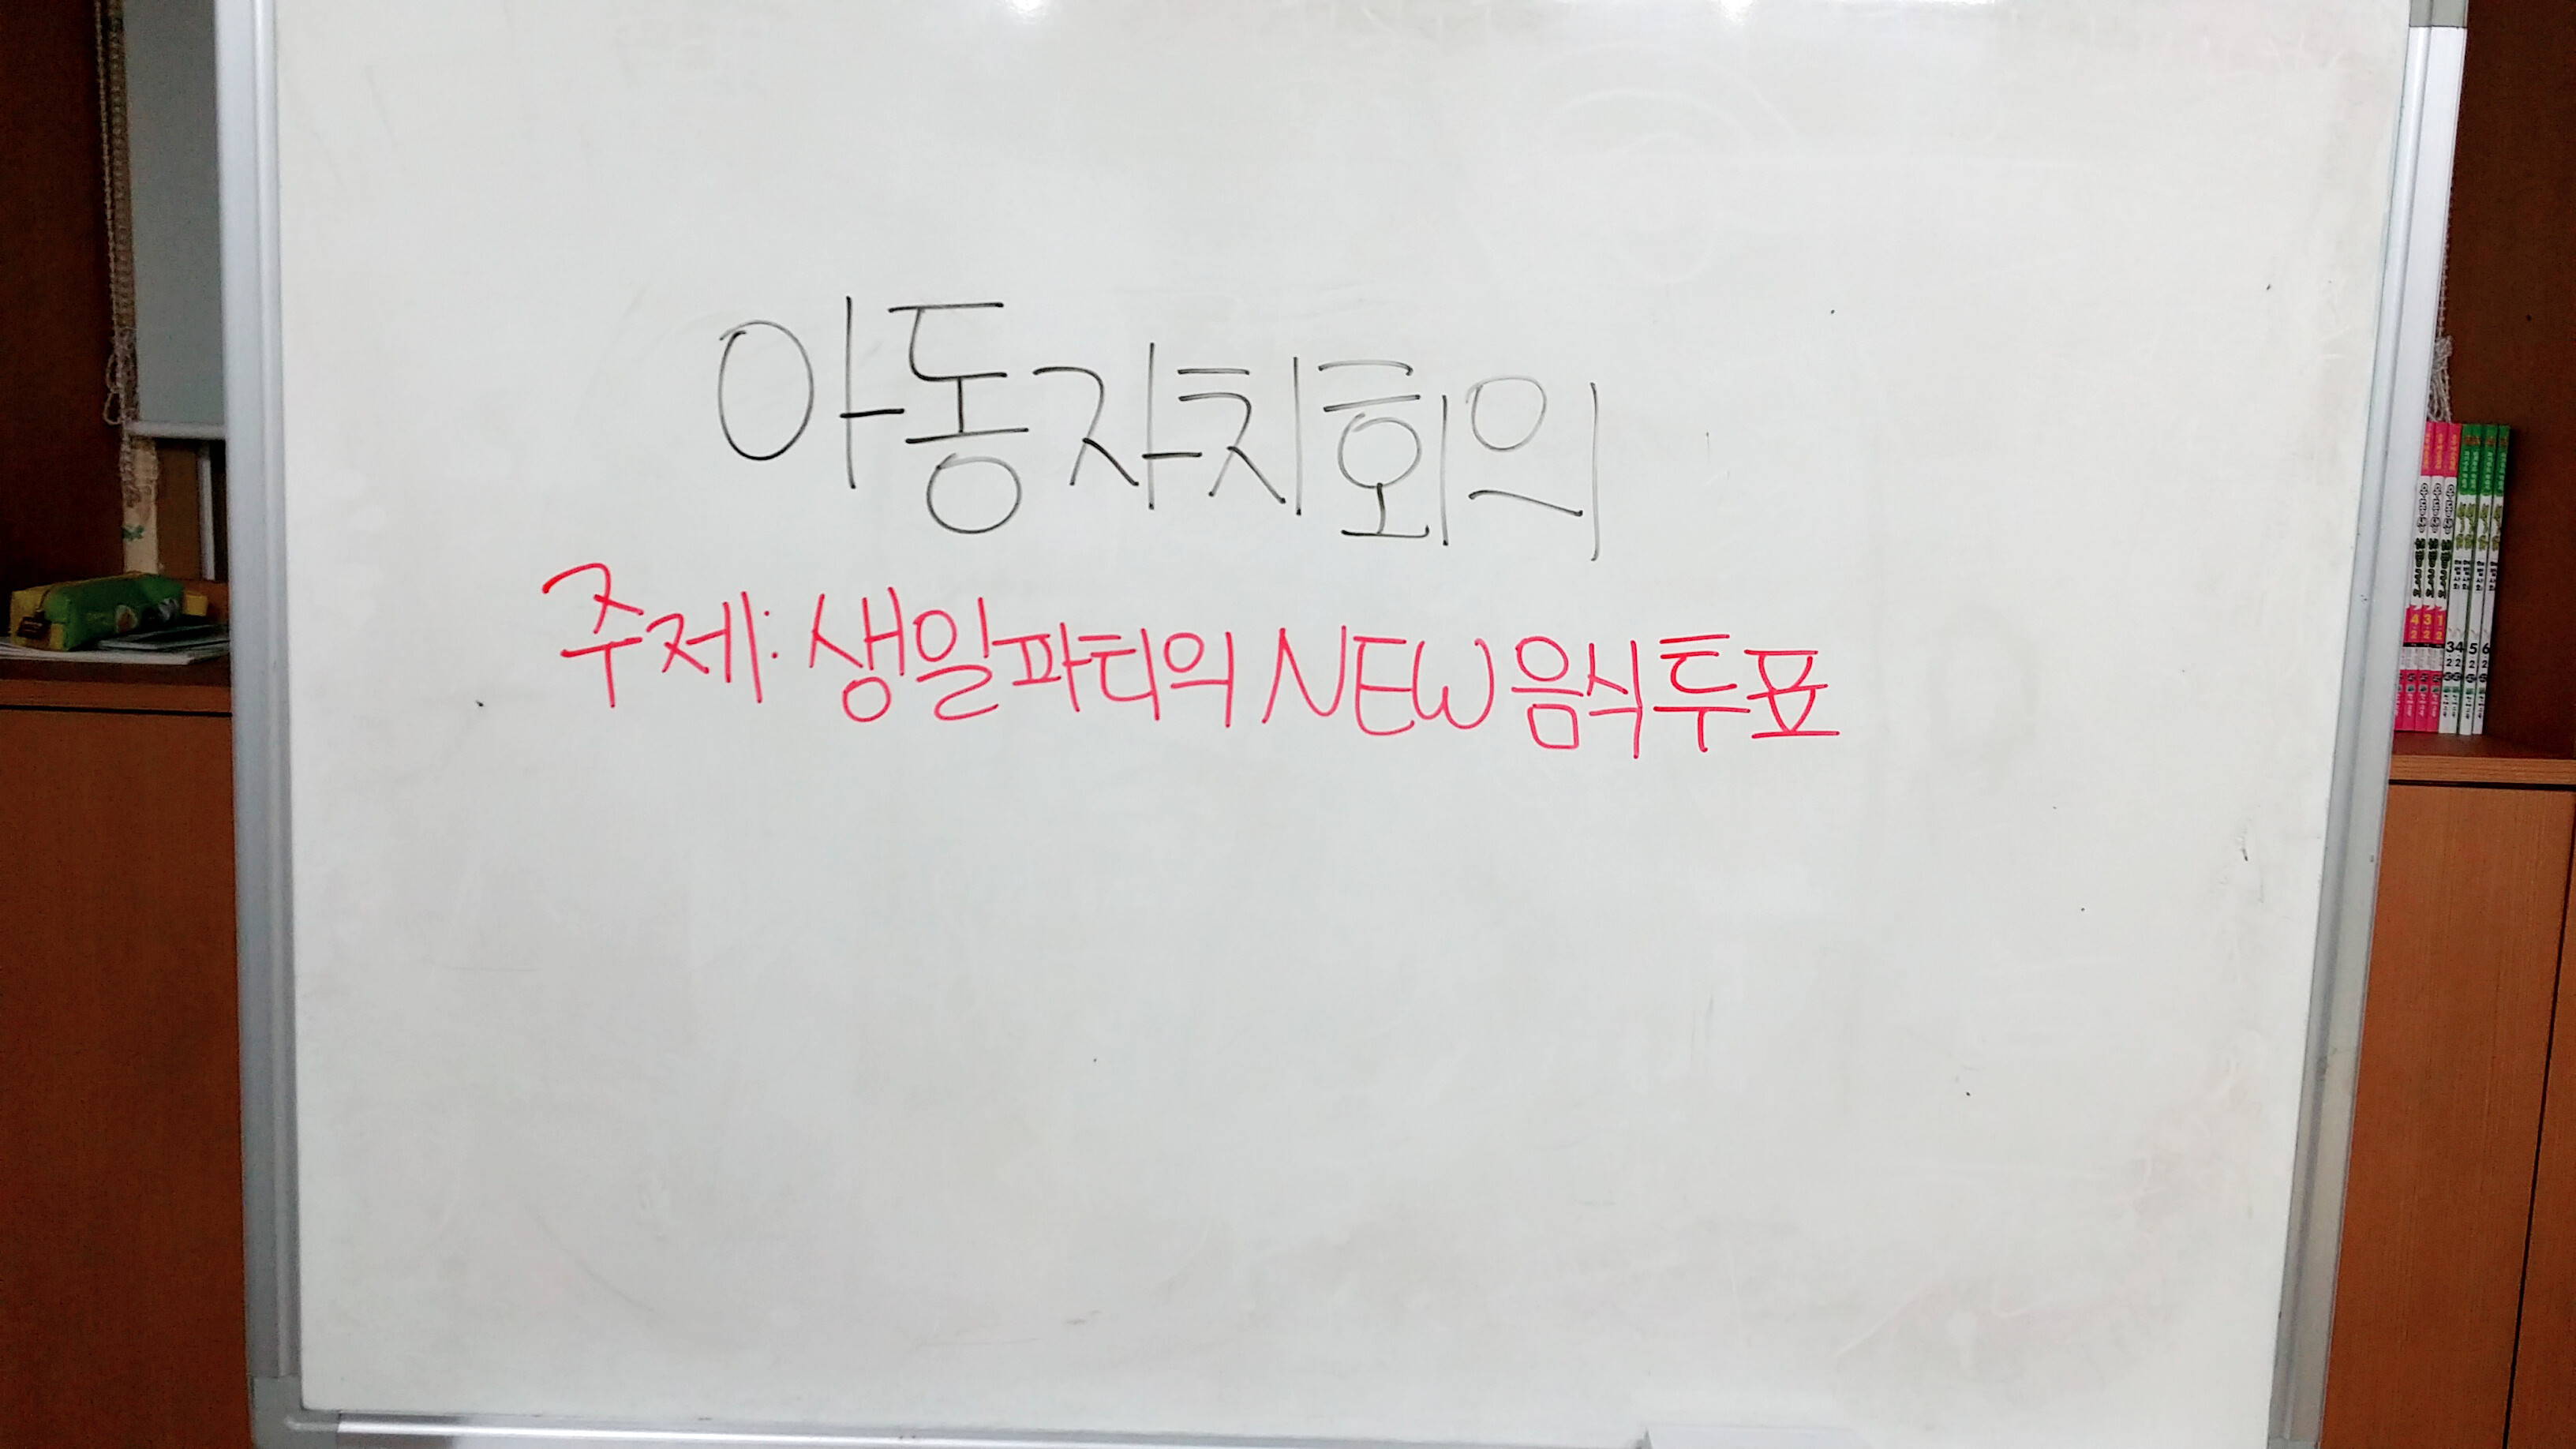 아동자치회의
주제: 생일파티의 NEW 음식투표